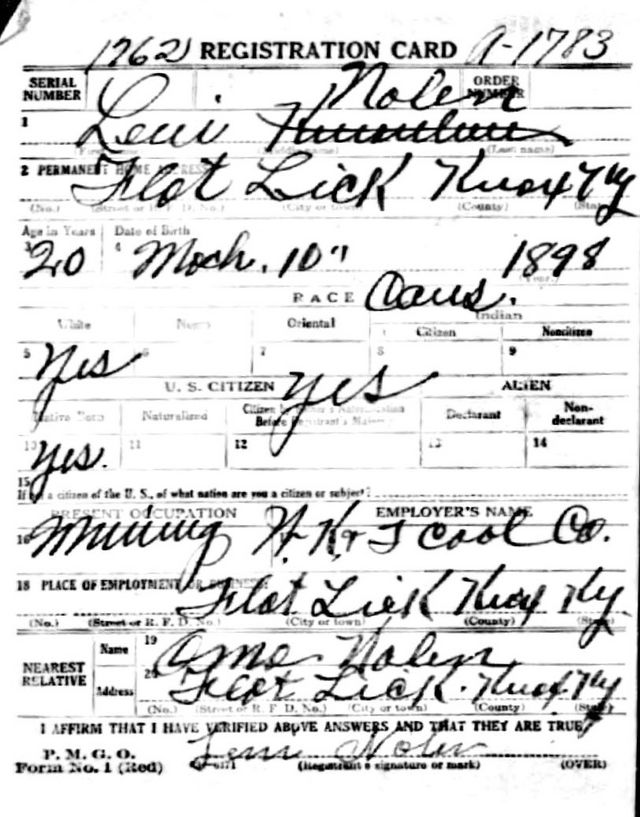 1762 REGISTRATION CARD A-1783
SERIAL NUMBER
ORDER NUMBER
Nolen
1 Levi
(First name) (Middle name) (Last name)
2 PERMANENT HOME ADDRESS
Flat Lick Knox Ky
(No.) (Street or R. F. D. No.) (City or town) (County) (State)
Age in Years Date of Birth
3 20 4 Mach. 10" 1898
(Year.)
RACE Caus.
White Negro Oriental Indian
Citizen Noncitizen
5 Yes 6 7 8 9
U. S. CITIZEN yes ALIEN
Native Born Naturalized Citizen by Father's Naturalization Before Registrant's Majority Declarant Non-declarant
10 yes. 11 12 13 14
15
If not a citizen of the U. S., of what nation are you a citizen or subject?
PRESENT OCCUPATION EMPLOYER'S NAME
16 Mining Coal Co.
18 PLACE OF EMPLOYMENT OR BUSINESS:
Flat Lick Knox Ky.
(No.) (Street or R. F. D. No.) (City or town) (County) (State)
NEAREST RELATIVE
Name 19 Nolen
Address 20 Flat Lick. Knox Ky
(No.) (Street or R. F. D. No.) (City or town) (County) (State)
I AFFIRM THAT I HAVE VERIFIED ABOVE ANSWERS AND THAT THEY ARE TRUE
P. M. G. O.
Form No. 1 (Red) Nolen
(Registrant's signature or mark) (OVER)